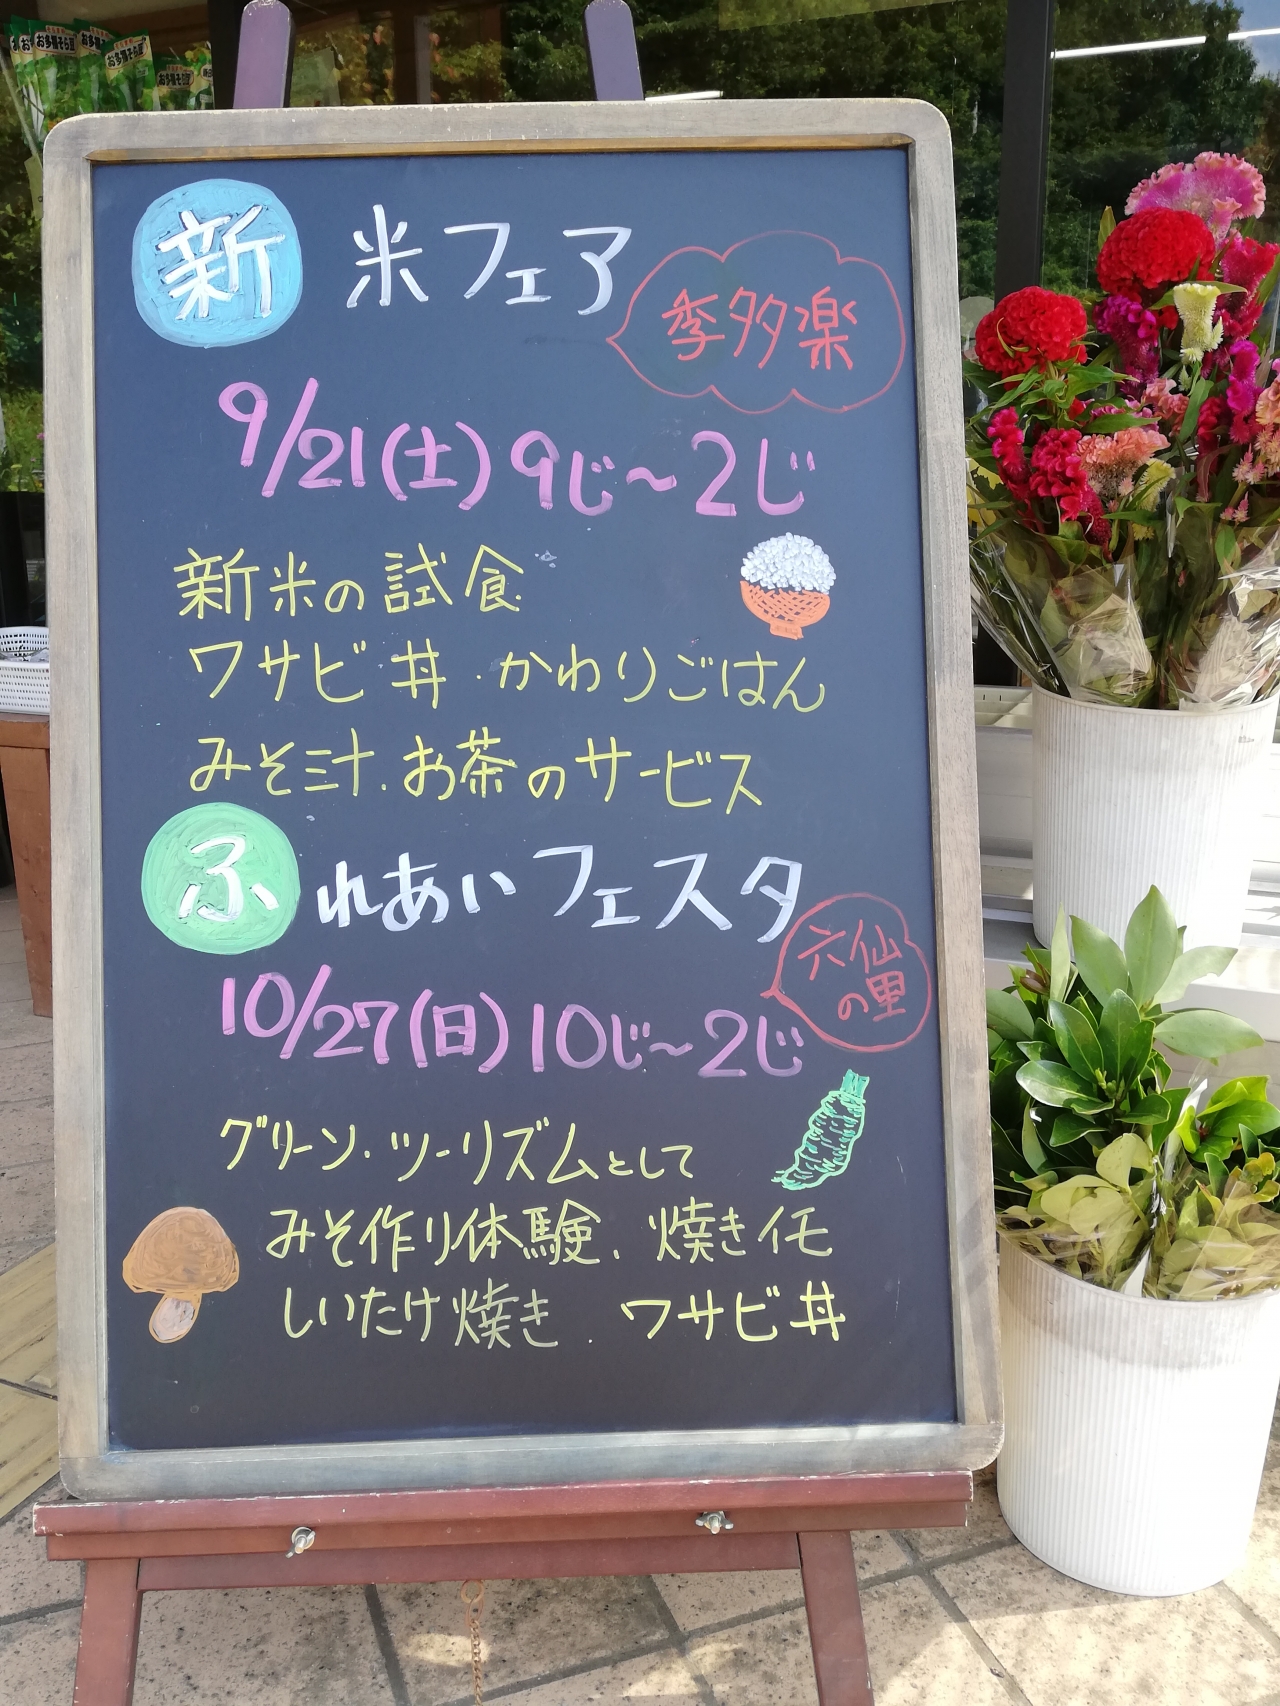 お多福そら豆
お多福そら豆
新米フェア
季多楽
9/21(土) 9じ〜2じ
新米の試食
ワサビ丼・かわりごはん
みそ汁.お茶のサービス
ふれあいフェスタ
六仙の里
10/27(日) 10じ〜2じ
グリーン・ツーリズムとして
みそ作り体験. 焼きイモ
しいたけ焼き. ワサビ丼